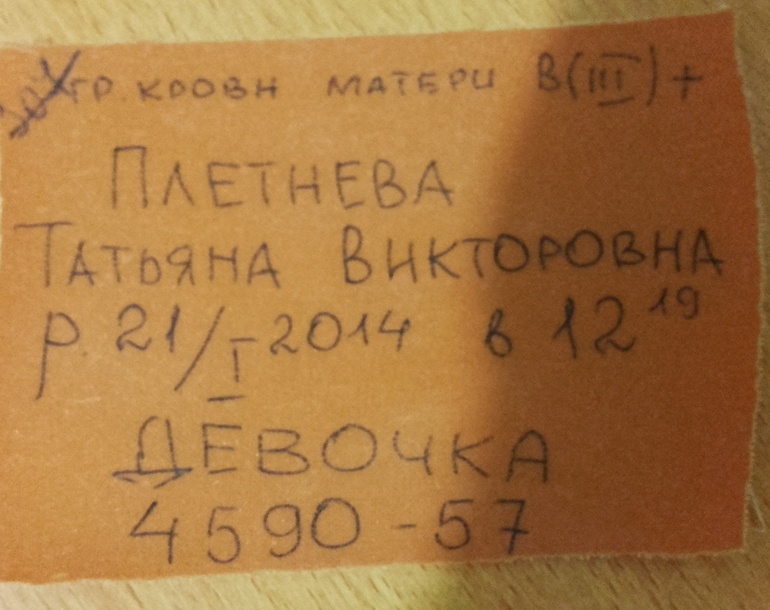 гр. крови матери В(III)+
Плетнева
Татьяна Викторовна
р. 21/I 2014 в 12 19
Девочка
4590-57